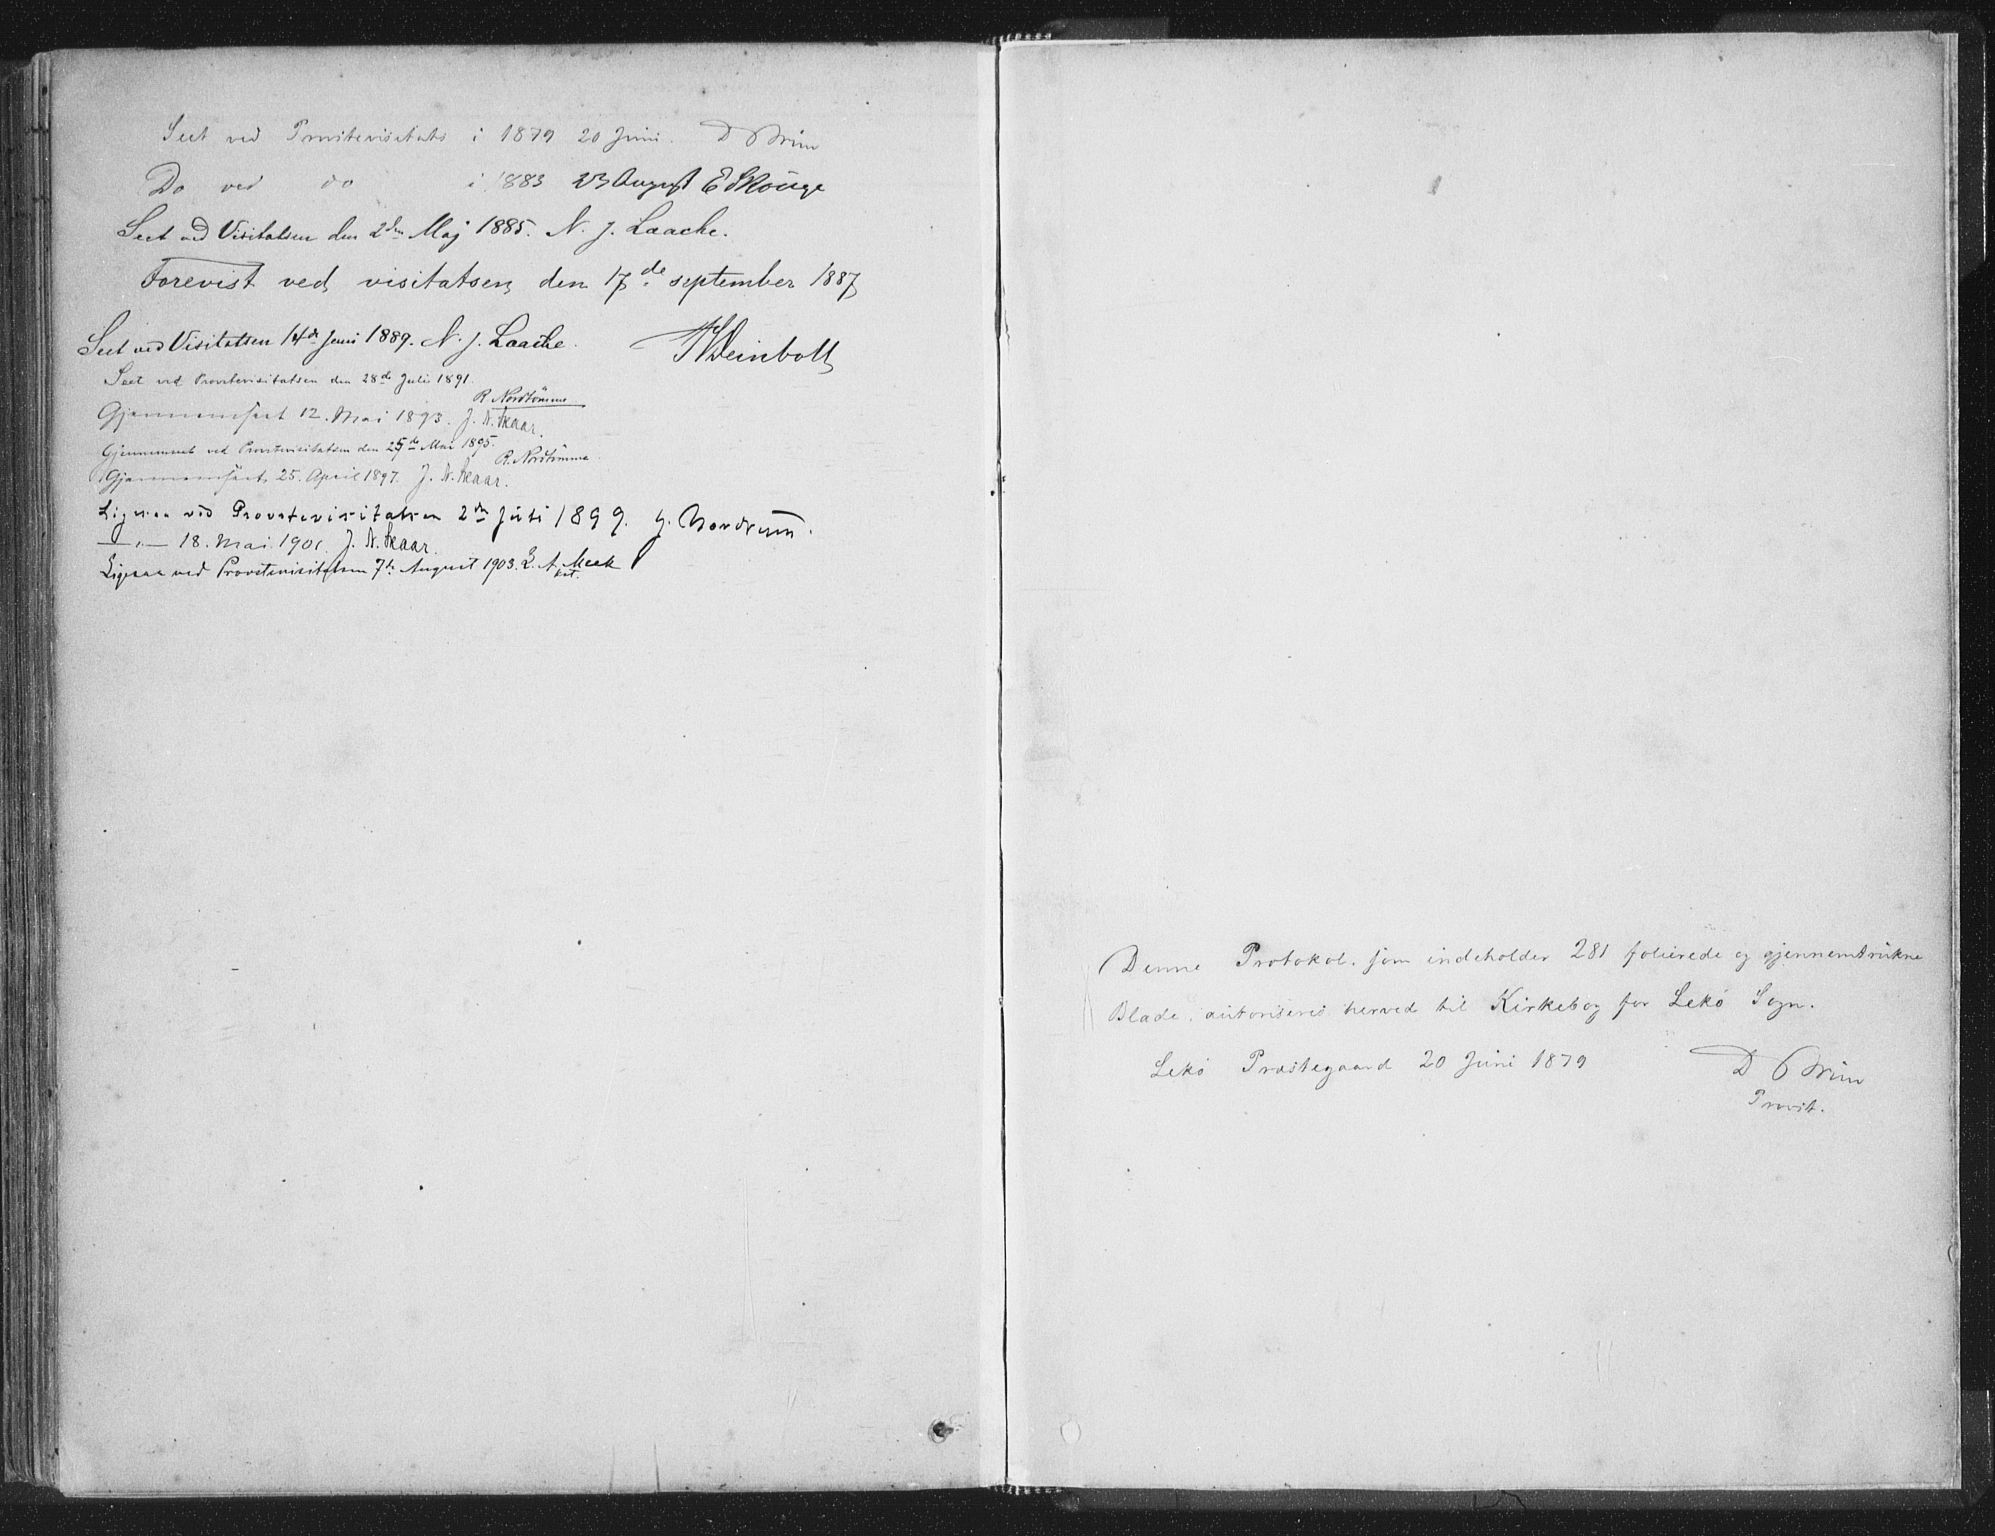 Seet ved Provstevisitats i 1879 20 Juni. D Brun
Do ved do i 1883 23 August E Skouge
Seet ved Visitatsen den 2den Maj 1885. N. J. Laache.
Forevist ved visitatsen den 17de september 1887
Seet ved Visitatsen 14de Juni 1889. N. J. Laache.
Weinholt
Seet ved Provstevisitatsen den 28de Juli 1891.
R. Nordtömme
Gjennemseet 12. Mai 1893. J. N. Skaar.
Gjennemseet ved Provstevisitatsen den 25de Mai 1895.
R. Nordtömme
Gjennemseet 25. April 1897. J. N. Skaar.
Ligesaa ved Provstevisitatsen 2den Juli 1899. J. Nordrum.
— „ — 18. Mai 1901. J. N. Skaar.
Ligesaa ved Provstevisitatsen 7de August 1903. L. A. Meek
kst.
Denne Protokol, som indeholder 281 folierede og gjennemtrukne
Blade, autoriseres herved til Kirkebog for Lekö Sogn.
Lekö Præstegaard 20 Juni 1879
D Brun
Provst.